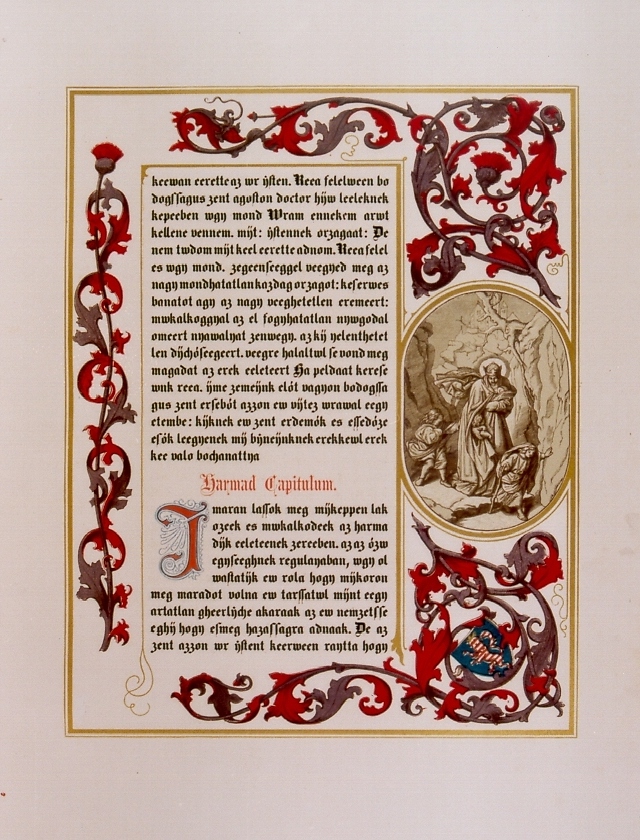 keewan eerette az wr ÿsten. Reea felelween bo
dogssagus zent agoston doctor hÿw leeleknek
kepeeben wgy mond Wram ennekem arwt
kellene vennem. mÿt: ÿstennek orzagaat: De
nem twdom mÿt keel eerette adnom. Reea felel
es wgy mond. zegeenseeggel veegyed meg az
nagy mondhatatlan kazdag orzagot: keserwes
banatot agy az nagy veeghetetlen eremeert:
mwkalkoggyal az el fogyhatatlan nywgodal
omeert nyawalyat zenwegy. az kÿ yelenthetet
len dÿchóseegeert. veegre halaltwl se vond meg
magadat az erek eeleteert Ha peldaat kerese
wnk reea. ÿme zemeÿnk elót vagyon bodogssa
gus zent ersebót azzon ew vÿtez wrawal eegy
etembe: kÿknek ew zent erdemók es essedóze
esók leegyenek mÿ bÿneÿnknek erekkewl erek
kee valo bochanattya
Harmad Capitulum.
Imaran lassok meg mÿkeppen lak
ozeek es mwkalkodeek az harma
dÿk eeleteenek zereeben. az az ózw
egyseeghnek regulayaban, wgy ol
wastatÿk ew rola hogy mÿkoron
meg maradot volna ew tarssatwl mÿnt eegy
artatlan gheerlÿche akaraak az ew nemzetsse
eghÿ hogy esmeg hazassagra adnaak. De az
zent azzon wr ÿstent keerween raytta hogy